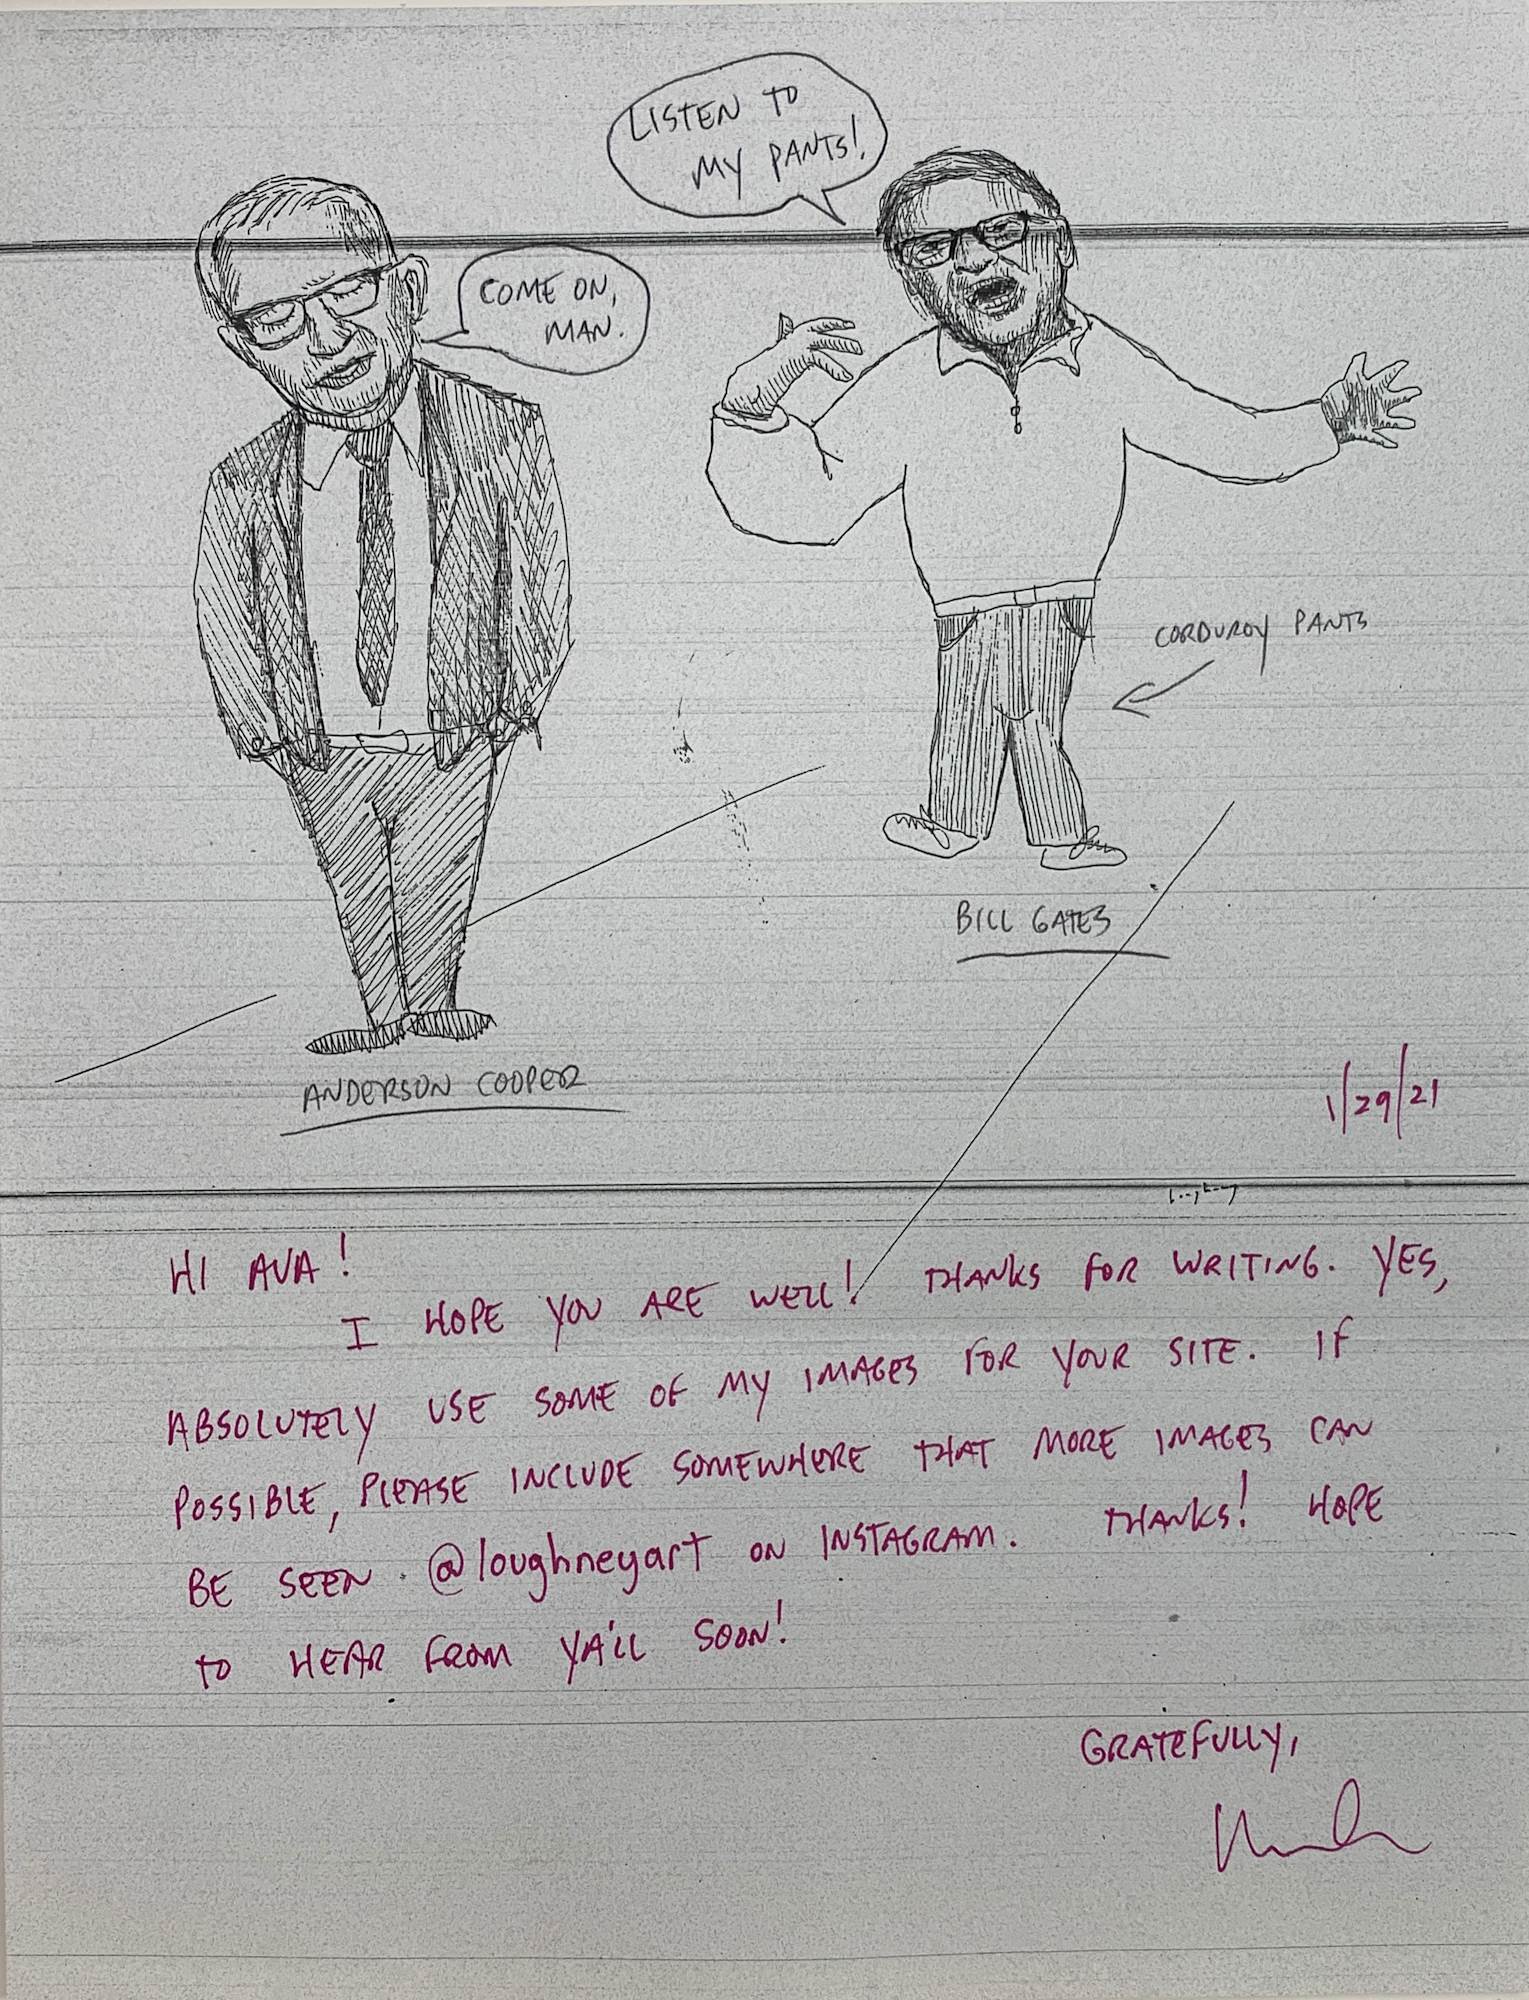 LISTEN TO
MY PANTS!
COME ON,
MAN.
CORDUROY PANTS
BILL GATES
ANDERSON COOPER
1/29/21
HI AVA!
I HOPE YOU ARE WELL! THANKS FOR WRITING. YES,
ABSOLUTELY USE SOME OF MY IMAGES FOR YOUR SITE. IF
POSSIBLE, PLEASE INCLUDE SOMEWHERE THAT MORE IMAGES CAN
BE SEEN @loughneyart ON INSTAGRAM. THANKS! HOPE
TO HEAR FROM YA'LL SOON!
GRATEFULLY,